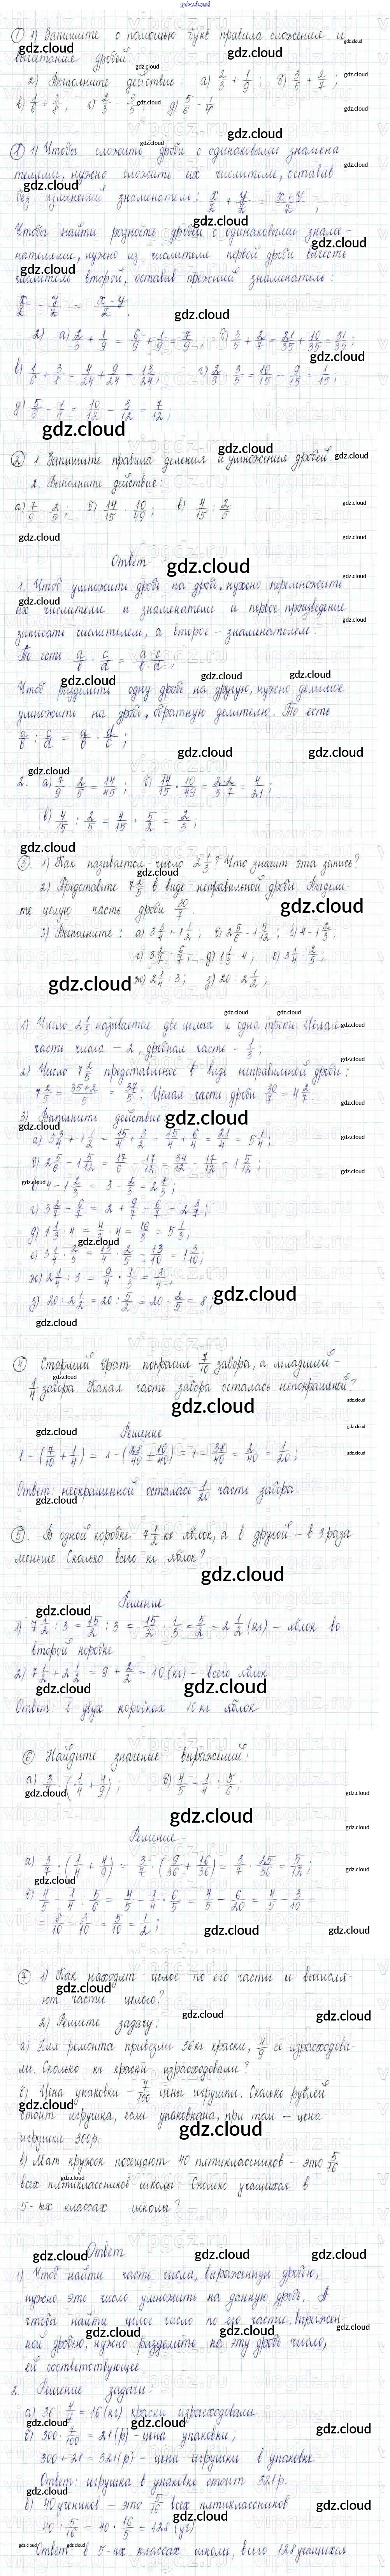 gdz.cloud
① 1) Запишите с помощью букв правила сложения и
вычитания дробей
2) Выполните действие: а) 2/3 + 1/9; б) 3/5 + 2/7;
в) 1/6 + 3/8; г) 2/3 - 3/5; д) 5/6 - 1/4
① 1) Чтобы сложить дроби с одинаковыми знамена-
телями, нужно сложить их числители, оставив
без изменений знаменатель: x/z + y/z = (x+y)/z;
Чтобы найти разность дробей с одинаковыми знаме-
нателями, нужно из числителя первой дроби вычесть
числитель второй, оставив прежний знаменатель:
x/z - y/z = (x-y)/z.
2) а) 2/3 + 1/9 = 6/9 + 1/9 = 7/9; б) 3/5 + 2/7 = 21/35 + 10/35 = 31/35;
в) 1/6 + 3/8 = 4/24 + 9/24 = 13/24; г) 2/3 - 3/5 = 10/15 - 9/15 = 1/15;
д) 5/6 - 1/4 = 10/12 - 3/12 = 7/12;
② 1. Запишите правила деления и умножения дробей
2. Выполните действие:
а) 7/9 · 2/5; б) 14/15 · 10/49; в) 4/15 : 2/5
Ответ
1. Чтоб умножить дробь на дробь, нужно перемножить
их числители и знаменатели и первое произведение
записать числителем, а второе - знаменателем.
То есть a/b · c/d = a·c/b·d;
Чтоб разделить одну дробь на другую, нужно делимое
умножить на дробь, обратную делителю. То есть
a/b : c/d = a/b · d/c;
2. а) 7/9 · 2/5 = 14/45; б) 14/15 · 10/49 = 2·2/3·7 = 4/21;
в) 4/15 : 2/5 = 4/15 · 5/2 = 2/3;
③ 1) Как называется число 2 1/3? Что значит эта запись?
2) Представьте 7 2/5 в виде неправильной дроби. Выдели-
те целую часть дроби 30/7.
3) Выполните: а) 3 3/4 + 1 1/2; б) 2 5/6 - 1 5/12; в) 4 - 1 2/3;
г) 3 2/7 - 6/7; д) 1 1/3 · 4; е) 3 1/4 · 2/5;
ж) 2 1/4 : 3; з) 20 : 2 1/2;
1) Число 2 1/3 называется две целых и одна треть. Целая
часть числа - 2, дробная часть - 1/3;
2) Число 7 2/5 представленное в виде неправильной дроби:
7 2/5 = (35+2)/5 = 37/5; Целая часть дроби 30/7 = 4 2/7
3) Выполнить действие
а) 3 3/4 + 1 1/2 = 15/4 + 3/2 = 15/4 + 6/4 = 21/4 = 5 1/4;
б) 2 5/6 - 1 5/12 = 17/6 - 17/12 = 34/12 - 17/12 = 1 5/12;
в) 4 - 1 2/3 = 3 - 2/3 = 2 1/3;
г) 3 2/7 - 6/7 = 2 + 9/7 - 6/7 = 2 3/7;
д) 1 1/3 · 4 = 4/3 · 4 = 16/3 = 5 1/3;
е) 3 1/4 · 2/5 = 13/4 · 2/5 = 13/10 = 1 3/10;
ж) 2 1/4 : 3 = 9/4 · 1/3 = 3/4;
з) 20 : 2 1/2 = 20 : 5/2 = 20 · 2/5 = 8;
④ Старший брат покрасил 7/10 забора, а младший -
1/4 забора. Какая часть забора осталась непокрашеной?
Решение
1 - (7/10 + 1/4) = 1 - (28/40 + 10/40) = 1 - 38/40 = 2/40 = 1/20;
Ответ: неокрашенной осталась 1/20 часть забора
⑤. В одной коробке 7 1/2 кг яблок, а в другой - в 3 раза
меньше. Сколько всего кг яблок?
Решение
1) 7 1/2 : 3 = 15/2 : 3 = 15/2 · 1/3 = 5/2 = 2 1/2 (кг) - яблок во
второй коробке
2) 7 1/2 + 2 1/2 = 9 + 2/2 = 10 (кг) - всего яблок
Ответ: в двух коробках 10 кг яблок
⑥ Найдите значение выражений:
а) 3/7 · (1/4 + 4/9); б) 4/5 - 1/4 : 5/6;
Решение
а) 3/7 · (1/4 + 4/9) = 3/7 · (9/36 + 16/36) = 3/7 · 25/36 = 5/12;
б) 4/5 - 1/4 : 5/6 = 4/5 - 1/4 · 6/5 = 4/5 - 6/20 = 4/5 - 3/10 =
= 8/10 - 3/10 = 5/10 = 1/2;
⑦ 1) Как находят целое по его части и вычисля-
ют части целого?
2) Решите задачу:
а) Для ремонта привезли 36 кг краски, 4/9 её израсходова-
ли. Сколько кг краски израсходовали?
б) Цена упаковки - 7/100 цены игрушки. Сколько рублей
стоит игрушка, если упаковкана, при том - цена
игрушки 300 р.
в) Мат кружок посещают 40 пятиклассников - это 5/16
всех пятиклассников школы. Сколько учащихся в
5-ых классах школы?
Ответ
1) Чтоб найти часть числа, выраженную дробью,
нужно это число умножить на данную дробь. А
чтобы найти целое число по его части, выражен-
ной дробью, нужно разделить на эту дробь число,
ей соответствующее
2. Решение задачи:
а) 36 · 4/9 = 16 (кг) краски израсходовали
б) 300 · 7/100 = 21 (р) - цена упаковки;
300 + 21 = 321 (р) - цена игрушки в упаковке
Ответ: игрушка в упаковке стоит 321 р.
в) 40 учеников - это 5/16 всех пятиклассников
40 : 5/16 = 40 · 16/5 = 128 (уч)
Ответ: в 5-ых классах школы, всего 128 учащихся